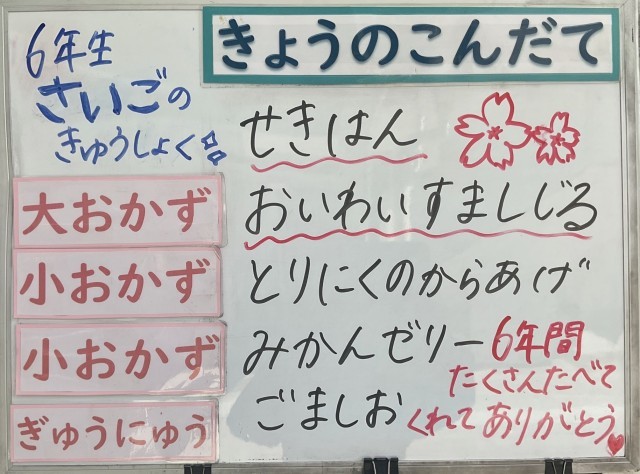 きょうのこんだて
6年生
さいごの
きゅうしょく
せきはん
大おかず
おいわいすましじる
小おかず
とりにくのからあげ
小おかず
みかんゼリー
ぎゅうにゅう
ごましお
6年間
たくさんたべて
くれてありがとう